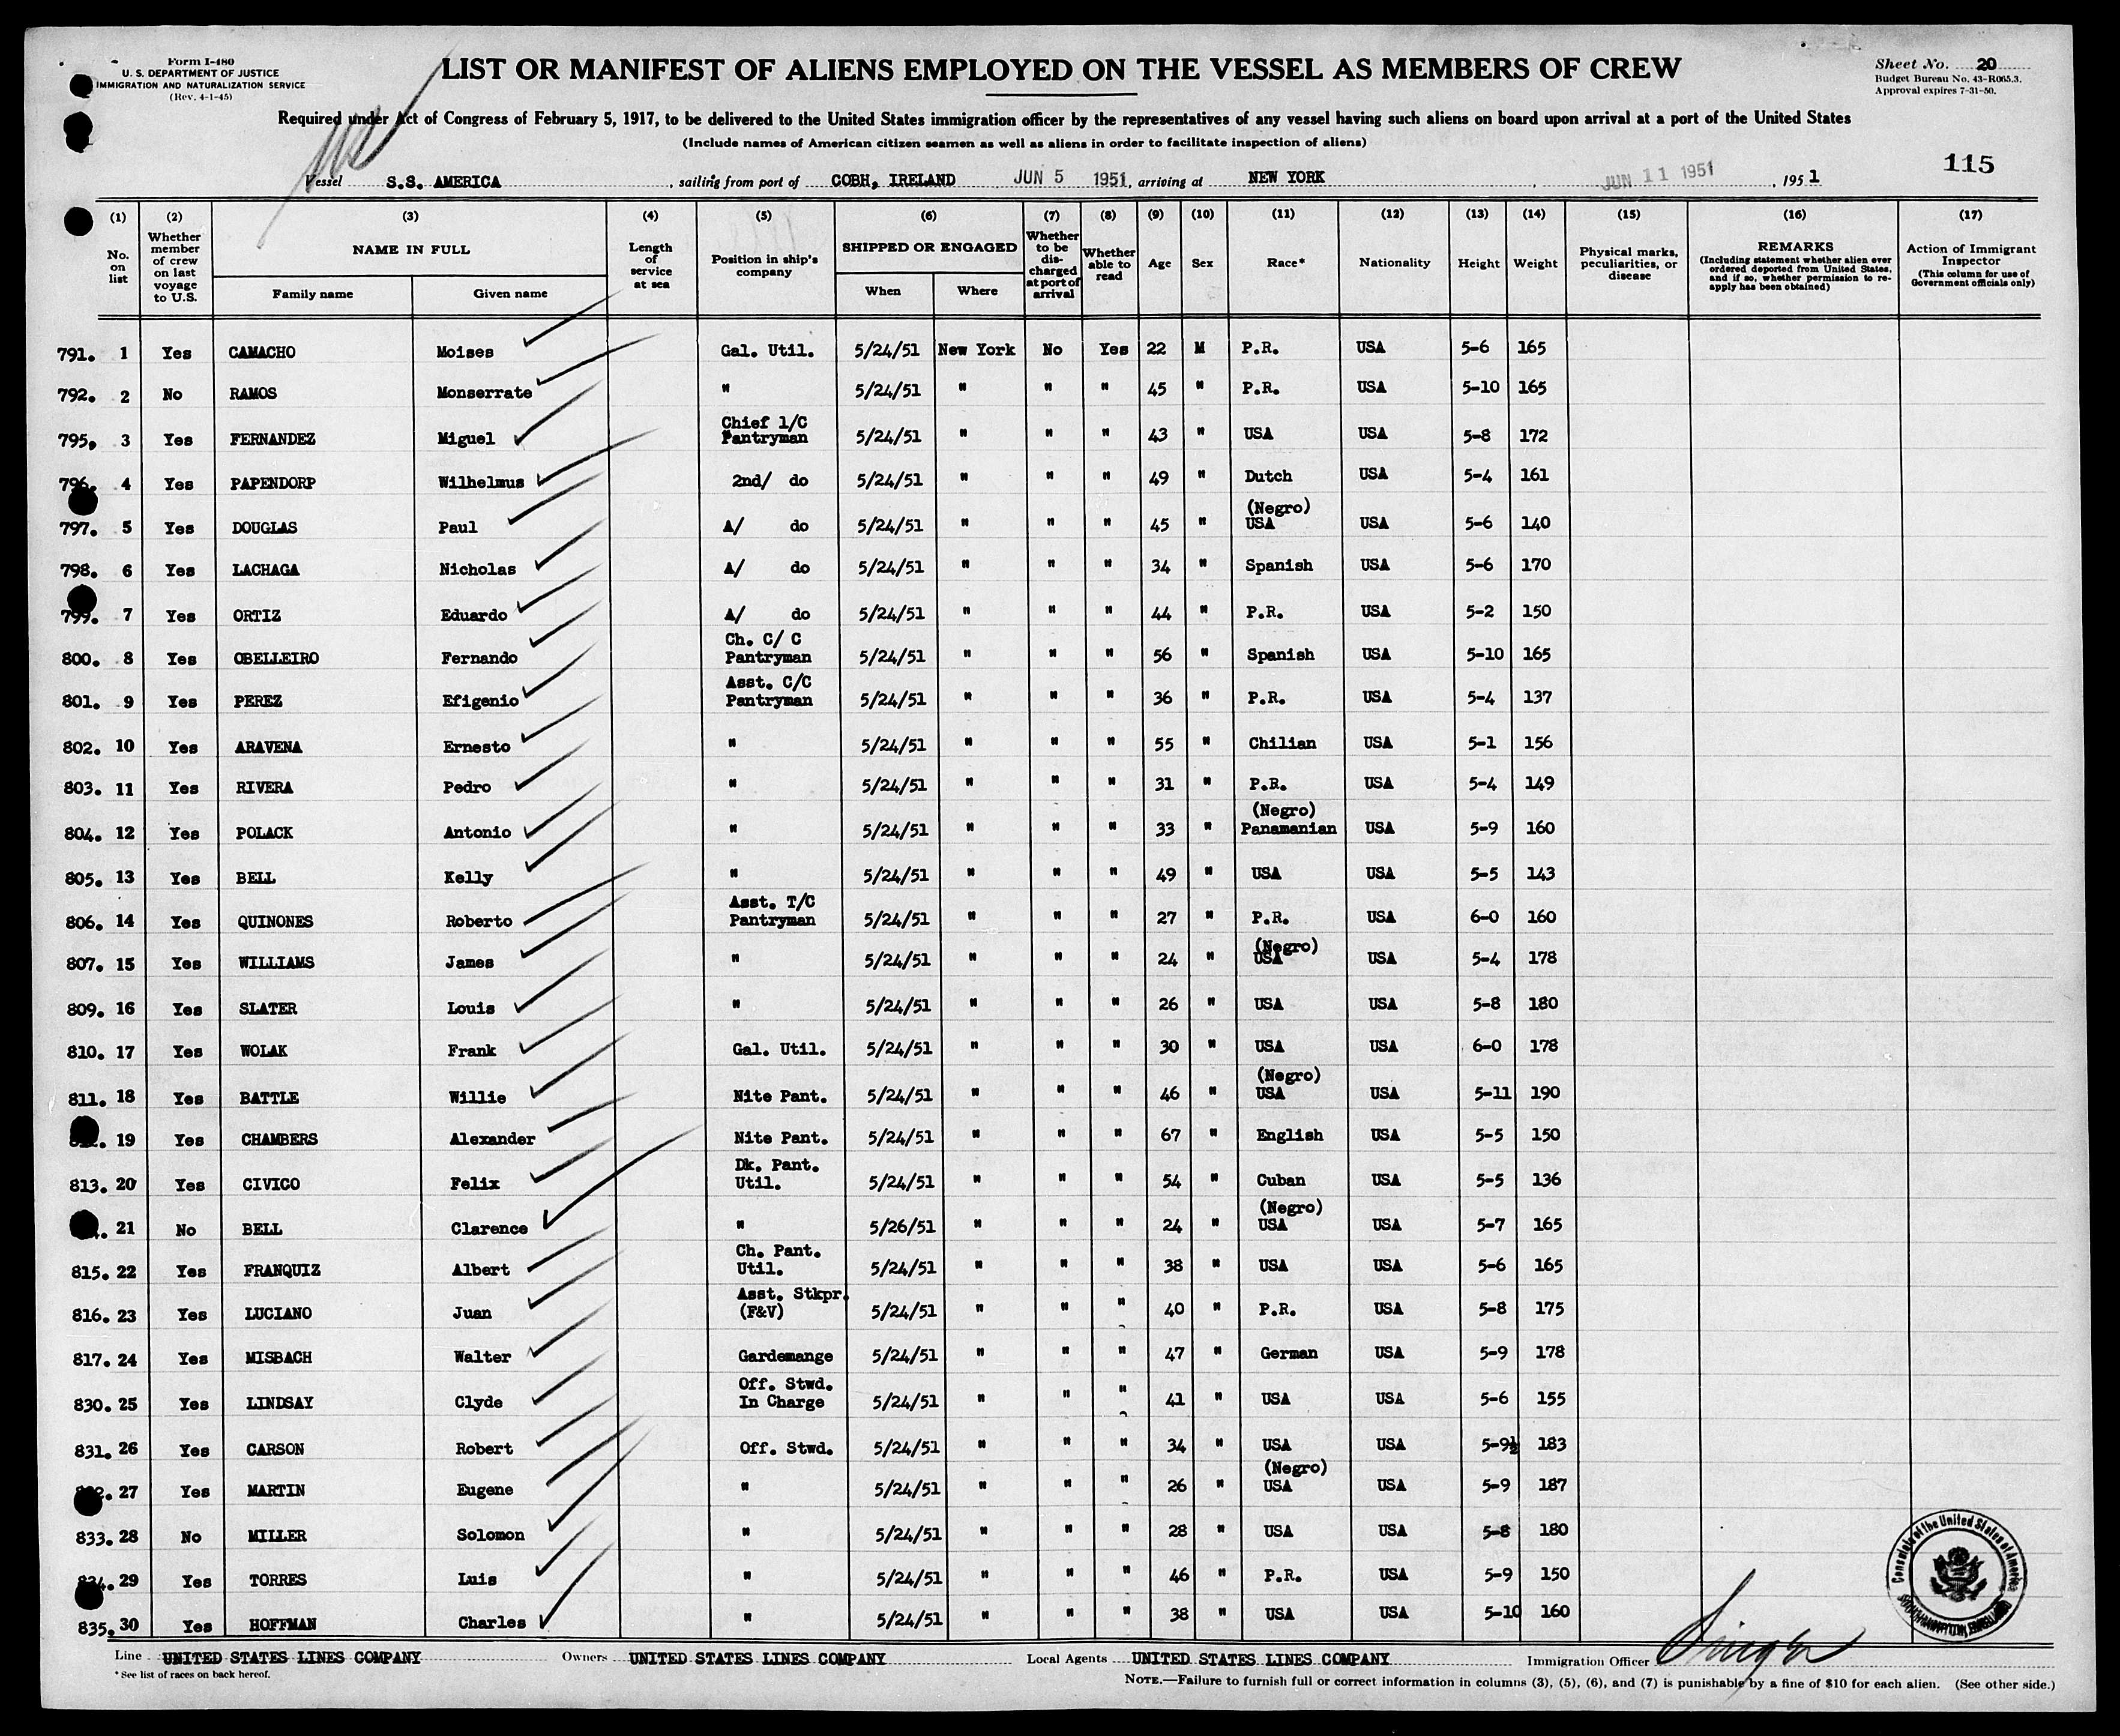 Form I-480
U. S. DEPARTMENT OF JUSTICE
IMMIGRATION AND NATURALIZATION SERVICE
(Rev. 4-1-45)
LIST OR MANIFEST OF ALIENS EMPLOYED ON THE VESSEL AS MEMBERS OF CREW
Sheet No. 20
Budget Bureau No. 43-R065.3.
Approval expires 7-31-50.
Required under Act of Congress of February 5, 1917, to be delivered to the United States immigration officer by the representatives of any vessel having such aliens on board upon arrival at a port of the United States
(Include names of American citizen seamen as well as aliens in order to facilitate inspection of aliens)
115
Vessel S.S. AMERICA, sailing from port of COBH, IRELAND JUN 5 1951, arriving at NEW YORK, JUN 11 1951, 1951
(1) (2) (3) (4) (5) (6) (7) (8) (9) (10) (11) (12) (13) (14) (15) (16) (17)
No. on list
Whether member of crew on last voyage to U.S.
NAME IN FULL
Family name Given name
Length of service at sea
Position in ship's company
SHIPPED OR ENGAGED
When Where
Whether to be discharged at port of arrival
Whether able to read
Age
Sex
Race*
Nationality
Height
Weight
Physical marks, peculiarities, or disease
REMARKS
(Including statement whether alien ever ordered deported from United States, and if so, whether permission to re-apply has been obtained)
Action of Immigrant Inspector
(This column for use of Government officials only)
791. 1 Yes CAMACHO Moises Gal. Util. 5/24/51 New York No Yes 22 M P.R. USA 5-6 165
792. 2 No RAMOS Monserrate " 5/24/51 " " " 45 " P.R. USA 5-10 165
795. 3 Yes FERNANDEZ Miguel Chief 1/C Pantryman 5/24/51 " " " 43 " USA USA 5-8 172
796. 4 Yes PAPENDORP Wilhelmus 2nd/ do 5/24/51 " " " 49 " Dutch USA 5-4 161
797. 5 Yes DOUGLAS Paul A/ do 5/24/51 " " " 45 " (Negro) USA USA 5-6 140
798. 6 Yes LACHAGA Nicholas A/ do 5/24/51 " " " 34 " Spanish USA 5-6 170
799. 7 Yes ORTIZ Eduardo A/ do 5/24/51 " " " 44 " P.R. USA 5-2 150
800. 8 Yes OBELLEIRO Fernando Ch. C/ C Pantryman 5/24/51 " " " 56 " Spanish USA 5-10 165
801. 9 Yes PEREZ Efigenio Asst. C/C Pantryman 5/24/51 " " " 36 " P.R. USA 5-4 137
802. 10 Yes ARAVENA Ernesto " 5/24/51 " " " 55 " Chilian USA 5-1 156
803. 11 Yes RIVERA Pedro " 5/24/51 " " " 31 " P.R. USA 5-4 149
804. 12 Yes POLACK Antonio " 5/24/51 " " " 33 " (Negro) Panamanian USA 5-9 160
805. 13 Yes BELL Kelly " 5/24/51 " " " 49 " USA USA 5-5 143
806. 14 Yes QUINONES Roberto Asst. T/C Pantryman 5/24/51 " " " 27 " P.R. USA 6-0 160
807. 15 Yes WILLIAMS James " 5/24/51 " " " 24 " (Negro) USA USA 5-4 178
809. 16 Yes SLATER Louis " 5/24/51 " " " 26 " USA USA 5-8 180
810. 17 Yes WOLAK Frank Gal. Util. 5/24/51 " " " 30 " USA USA 6-0 178
811. 18 Yes BATTLE Willie Nite Pant. 5/24/51 " " " 46 " (Negro) USA USA 5-11 190
19 Yes CHAMBERS Alexander Nite Pant. 5/24/51 " " " 67 " English USA 5-5 150
813. 20 Yes CIVICO Felix Dk. Pant. Util. 5/24/51 " " " 54 " Cuban USA 5-5 136
21 No BELL Clarence " 5/26/51 " " " 24 " (Negro) USA USA 5-7 165
815. 22 Yes FRANQUIZ Albert Ch. Pant. Util. 5/24/51 " " " 38 " USA USA 5-6 165
816. 23 Yes LUCIANO Juan Asst. Stkpr. (F&V) 5/24/51 " " " 40 " P.R. USA 5-8 175
817. 24 Yes MISBACH Walter Gardemange 5/24/51 " " " 47 " German USA 5-9 178
830. 25 Yes LINDSAY Clyde Off. Stwd. In Charge 5/24/51 " " " 41 " USA USA 5-6 155
831. 26 Yes CARSON Robert Off. Stwd. 5/24/51 " " " 34 " USA USA 5-9½ 183
27 Yes MARTIN Eugene " 5/24/51 " " " 26 " (Negro) USA USA 5-9 187
833. 28 No MILLER Solomon " 5/24/51 " " " 28 " USA USA 5-8 180
29 Yes TORRES Luis " 5/24/51 " " " 46 " P.R. USA 5-9 150
835. 30 Yes HOFFMAN Charles " 5/24/51 " " " 38 " USA USA 5-10 160
Consulate of the United States of America
SOUTHAMPTON, ENGLAND
Line UNITED STATES LINES COMPANY Owners UNITED STATES LINES COMPANY Local Agents UNITED STATES LINES COMPANY Immigration Officer
*See list of races on back hereof.
NOTE.—Failure to furnish full or correct information in columns (3), (5), (6), and (7) is punishable by a fine of $10 for each alien. (See other side.)